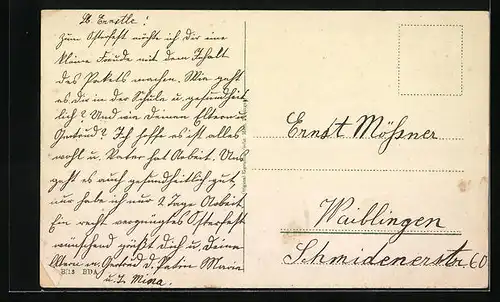 Lb. Ernstle!
Zum Osterfest möchte ich dir eine
kleine Freude mit dem Inhalt
des Pakets machen. Wie geht
es dir in der Schule u. gesundheit
lich? Und wie deinen Eltern u.
Gertrud? Ich hoffe es ist alles
wohl u. Vater hat Arbeit. Uns
geht es auch gesundheitlich gut,
nur habe ich nur 2 Tage Arbeit
Ein recht vergnügtes Osterfest
wünschend grüßt dich u. deine
Eltern m. Gertrud d. Patin Marie
u. T. Mina.
B.13 BDA
Ernst Mößner
Waiblingen
Schmidenerstr. 60